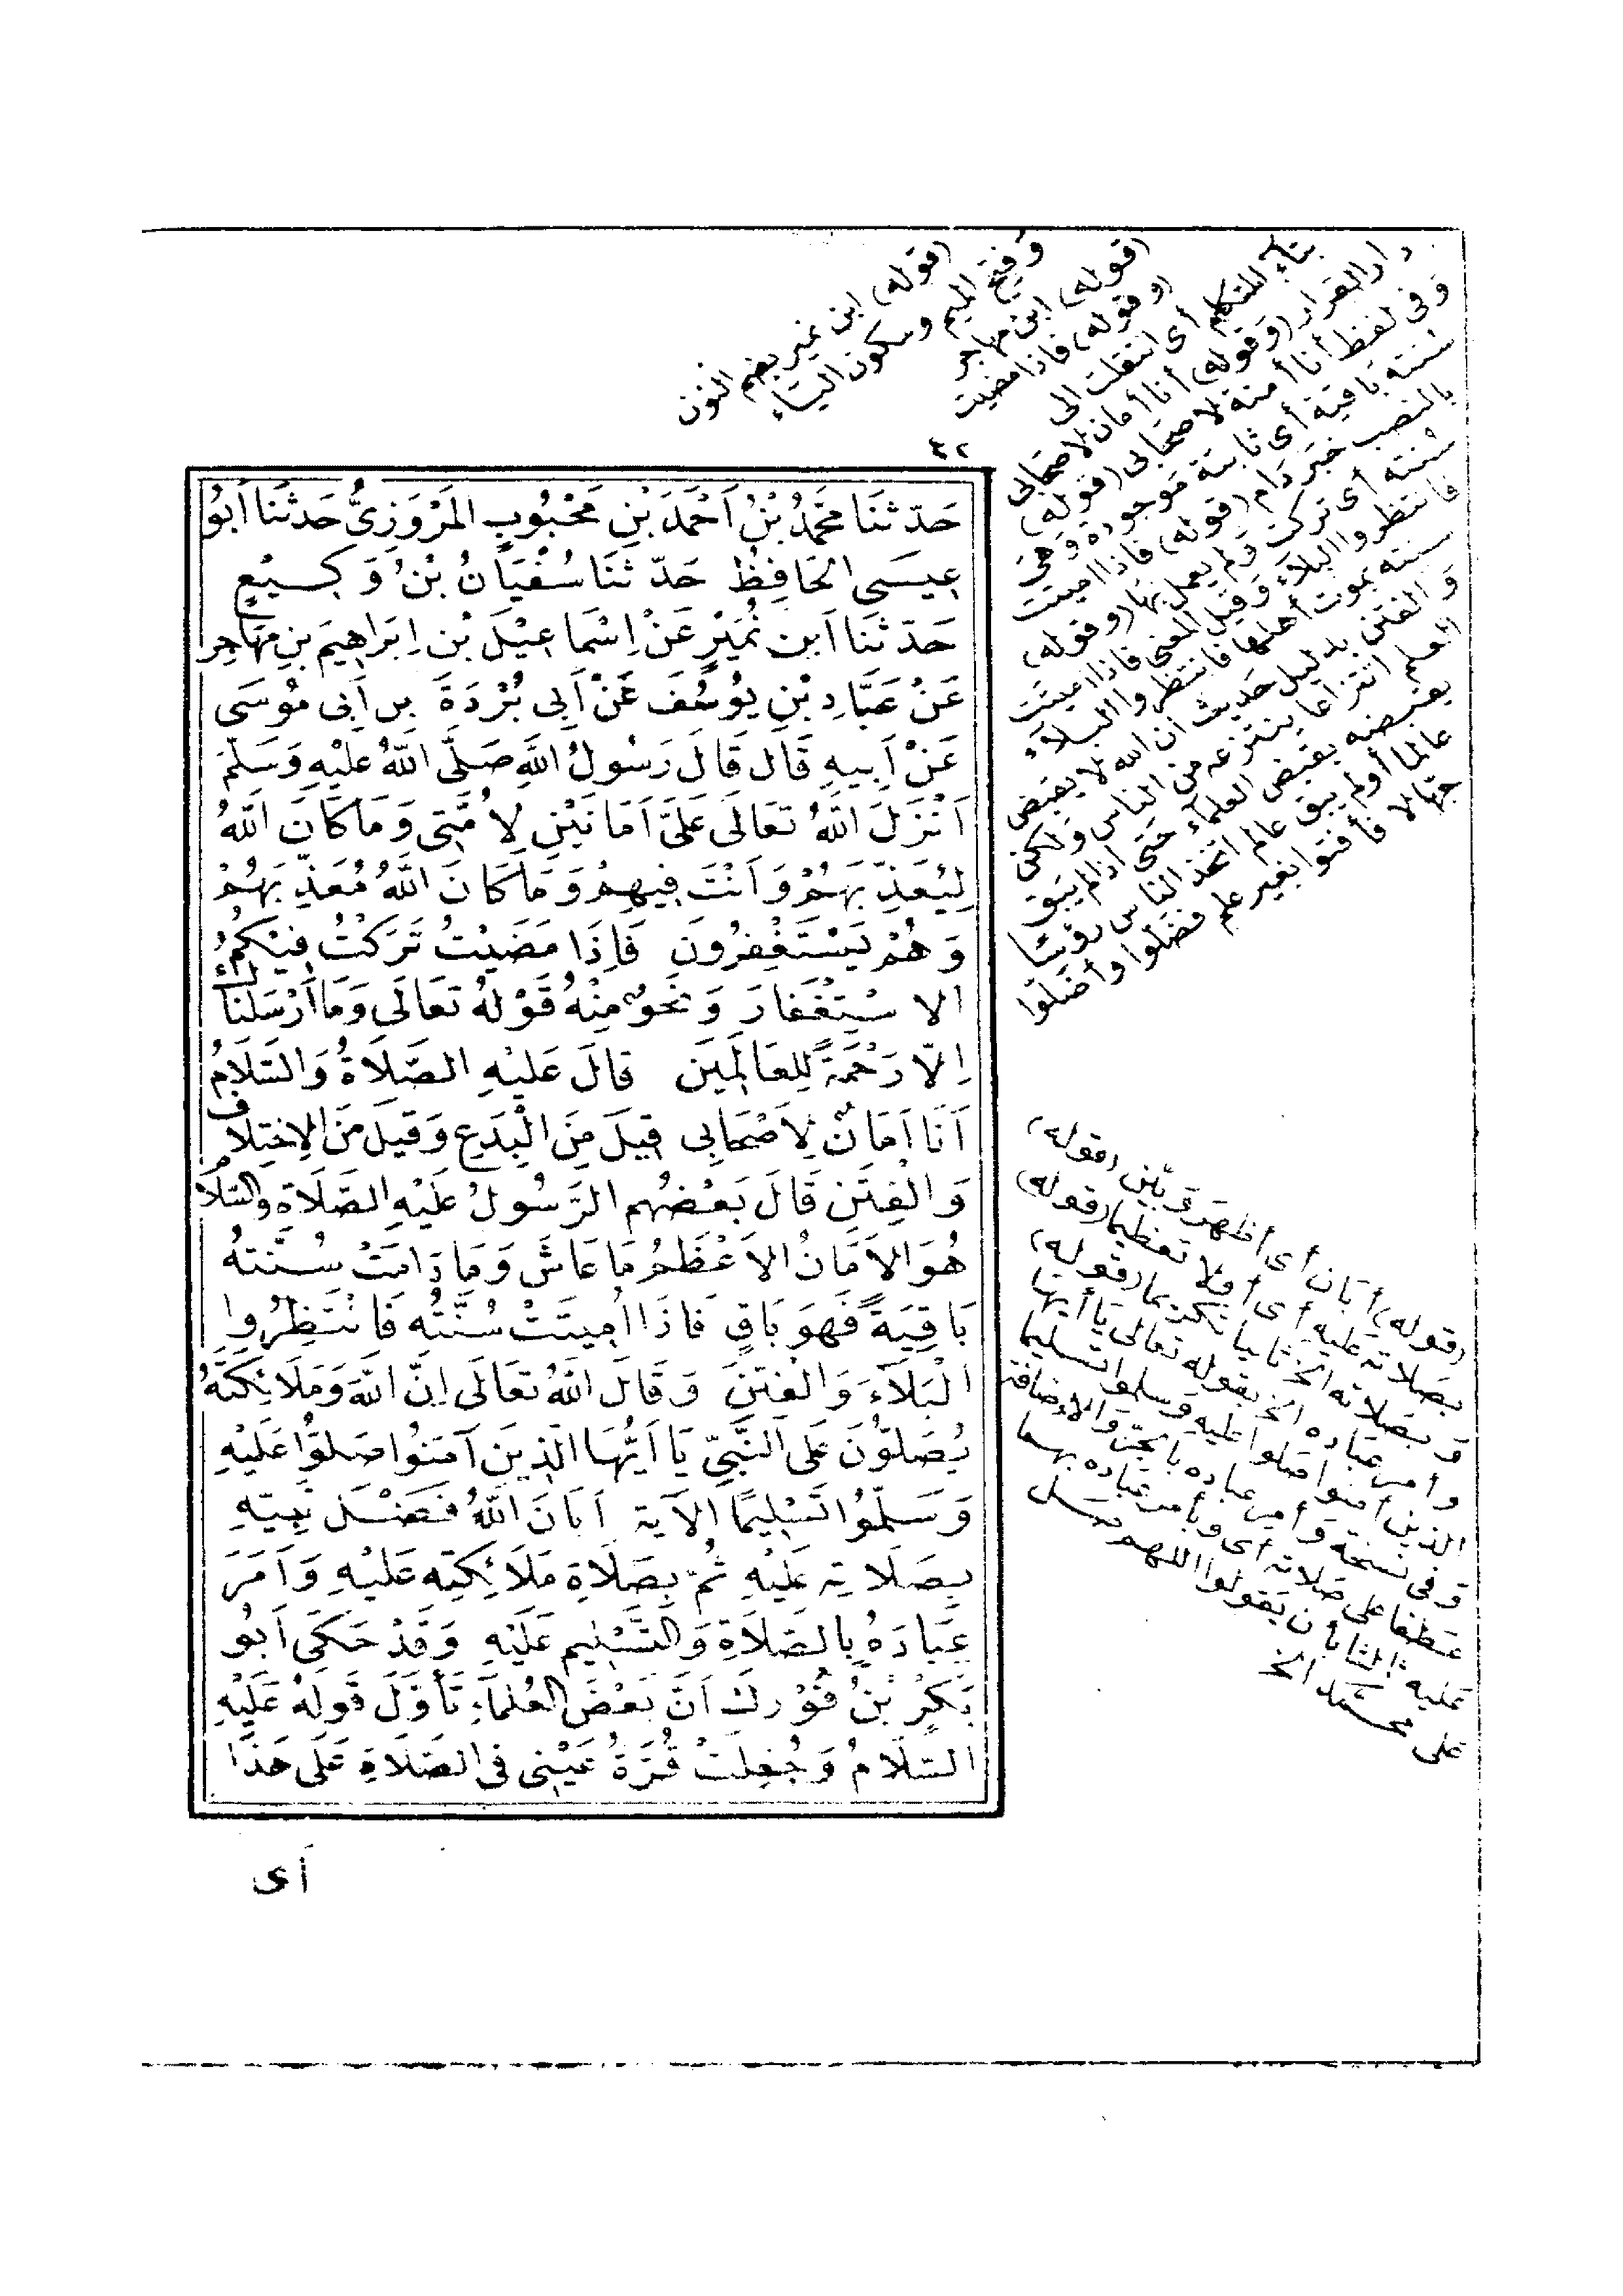 (قوله) ابن نمير بضم النون
وفتح الميم وسكون الياء
(قوله) ابن مهاجر
(وقوله) فاذا مضيت
بتاء المتكلم أى انتقلت الى
دار القرار (وقوله) أنا أمان لاصحابى
وفى لفظ أنا أمنة لاصحابى (قوله)
سنته باقية أى ثابتة موجودة وهى
بالنصب خبر دام (قوله) فاذا اميتت
سنته أى تركت ولم يعمل بها (وقوله)
فانتظروا البلاء وقيل المعنى فاذا اميتت
سنته بموت أهلها فانتظروا البلاء
والفتن بدليل حديث ان الله لا يقبض
العلم انتزاعا ينتزعه من الناس ولكن
يقبضه بقبض العلماء حتى اذا لم يبق
عالما أو لم يبق عالم اتخذ الناس رؤسا
جهالا فأفتوا بغير علم فضلوا وأضلوا
٤٢
حَدّثنَا مُحَمَّدُ بْنُ اَحْمَدَ بْنِ مَحْبُوبٍ المَرْوَزِىُّ حَدثَنَا اَبُو
عِيسَى الحَافِظُ حَدّثَنَا سُفْيَانُ بْنُ وَكِيْعٍ
حَدّثَنَا اَبن نُمَيْرٍ عَنْ اِسْمَاعِيْلَ بْن اِبَراهِيَم بنِ مُهَاجِر
عَنْ عَبَّادِ بْنِ يوُسُفَ عَنْ اَبِى بُرْدَةَ بن اَبِى مُوسَى
عَنْ اَبِيهِ قَال قَالَ رَسُولُ اللهِ صَلَّى اللهُ عَليْهِ وَسَلَّمَ
اَنْزَلَ اللهُ تعَالَى عَلَىَّ اَمَانَيْنِ لِاُمَّتِى وَمَا كَانَ اللهُ
لِيُعَذِّبَهُمْ وَاَنْتَ فِيهِمْ وَمَا كَانَ اللهُ مُعَذِّبَهُمْ
وَهُمْ يَسْتَغْفِرُونَ فَاِذَا مَضَيْتُ تَرَكْتُ فِيْكُمُ
الاسْتِغْفَارَ وَنَحْوٌ مِنْهُ قَوْلهُ تعَالَى وَمَا اَرْسَلْنَاكَ
اِلّا رَحْمَةً لِلعَالَمِيَن قالَ عَليْهِ الصَّلَاةُ وَالسَّلَامُ
اَنَا اَمَانٌ لِاَصْحَابِى قِيلَ مِنَ الْبِدَعِ وَقِيلَ مِنَ الاِخْتِلَافِ
وَالْفِتَنِ قَالَ بَعْضُهُم الرَّسُولُ عَلَيْهِ الصَّلَاة وَالسَّلَامُ
هُوَ الاَمَانُ الاَعْظَمُ مَا عَاشَ وَمَا دَامَتْ سُنَّتهُ
بَاقِيَةً فَهوَ بَاقٍ فَاذَا اُمِيتَتْ سُنَّتُه فَانْتَظِرُوا
الْبَلَآءَ وَالْفِتَنَ وَقَالَ اللهُ تعَالَى اِنَّ اللهَ وَمَلَائِكَتَهُ
يُصَلّوُنَ عَلى النَّبِىِّ يَا اَيُّهَا الّذِينَ آمَنوُا صَلّوُا عَلَيْهِ
وَسَلّمُوا تَسْلِيمًا الآية اَبَانَ اللهُ فَضْل نَبِيّهِ
بِصَلَاتِه عَليْهِ ثُمَّ بِصَلَاةِ مَلَائِكَتِه عَلَيْهِ وَاَمَرَ
عِبَادَهُ بِالصَّلَاةِ وَالتَّسْلِيم عَلَيْهِ وَقَدْ حَكَى اَبُو
بَكْرِ بْنُ فُوْرك اَنَّ بَعْضَ العُلَمَآءِ تَأَوَّلَ قَولَهُ عَلَيْهِ
السَّلَامُ وَجُعِلَتْ قُرَّةُ عَيْنِى فى الصَّلَاةِ عَلَى هَذَا
(قوله) أبان أى أظهر وبين (قوله)
بصلاته عليه أى أولا تعظيما (قوله)
وبصلاته الخ ثانيا تكريما (قوله)
وأمر عباده الخ بقوله تعالى يا أيها
الذين آمنوا صلوا عليه وسلموا تسليما
وفى نسخة وأمر عباده بالجر والاضافة
عطفا على صلاته أى وبأمر عباده بهما
عليه ثالثا بأن يقولوا اللهم صل
على محمد الخ
أى